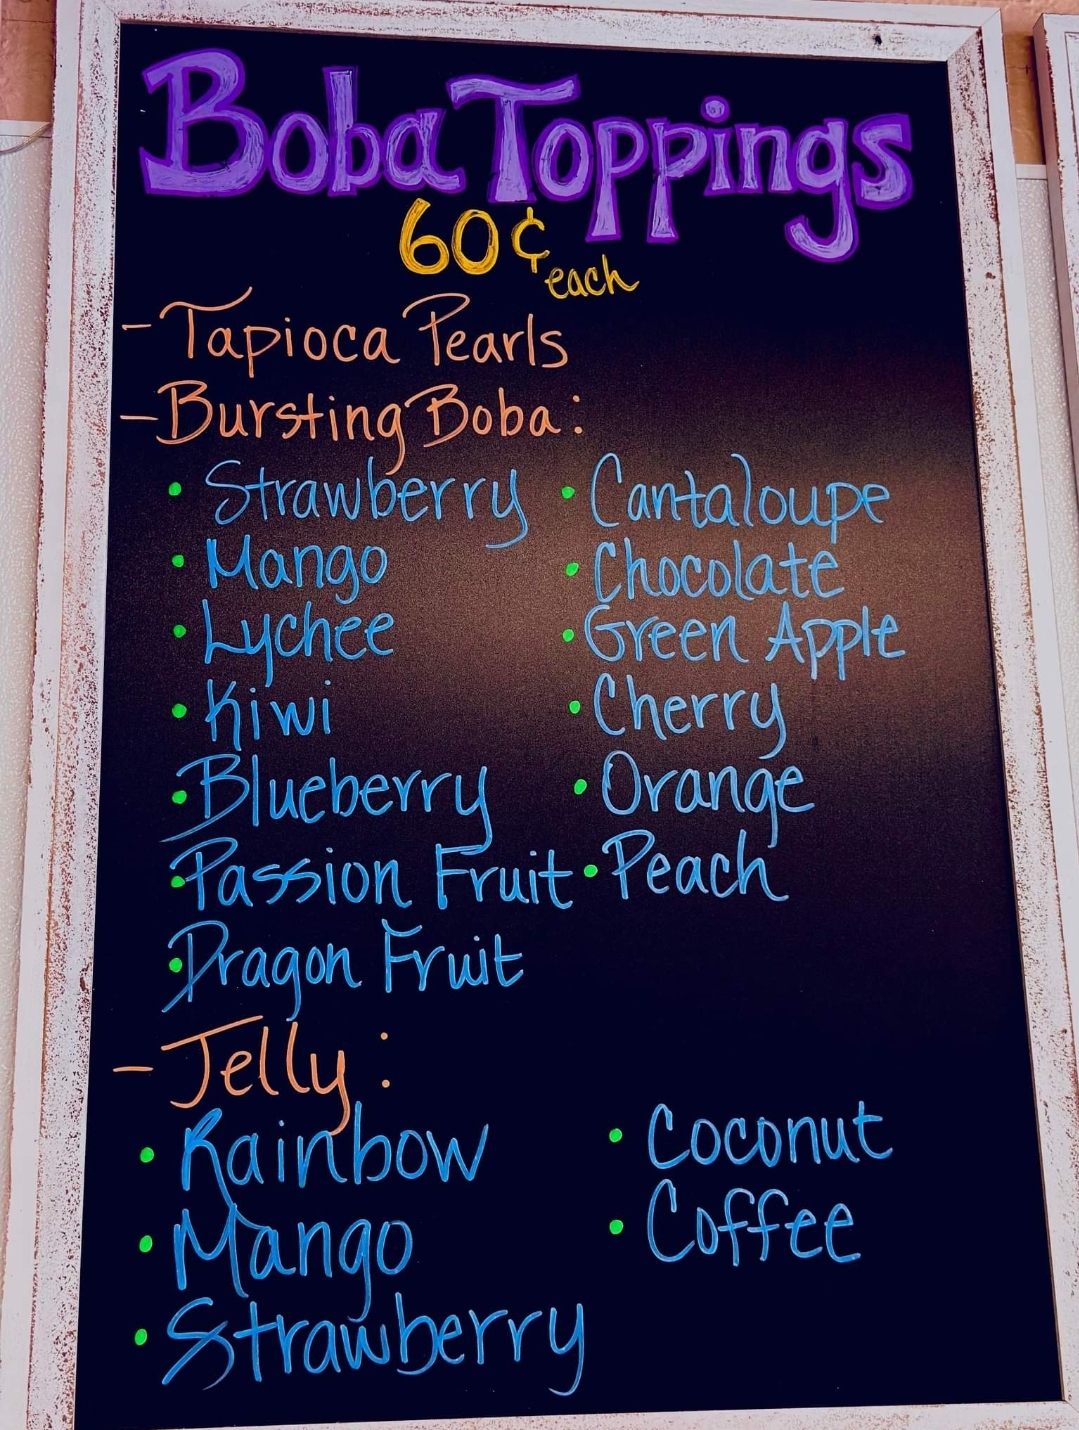 Boba Toppings
60¢ each
- Tapioca Pearls
- Bursting Boba:
• Strawberry • Cantaloupe
• Mango • Chocolate
• Lychee • Green Apple
• Kiwi • Cherry
• Blueberry • Orange
• Passion Fruit • Peach
• Dragon Fruit
- Jelly:
• Rainbow • Coconut
• Mango • Coffee
• Strawberry